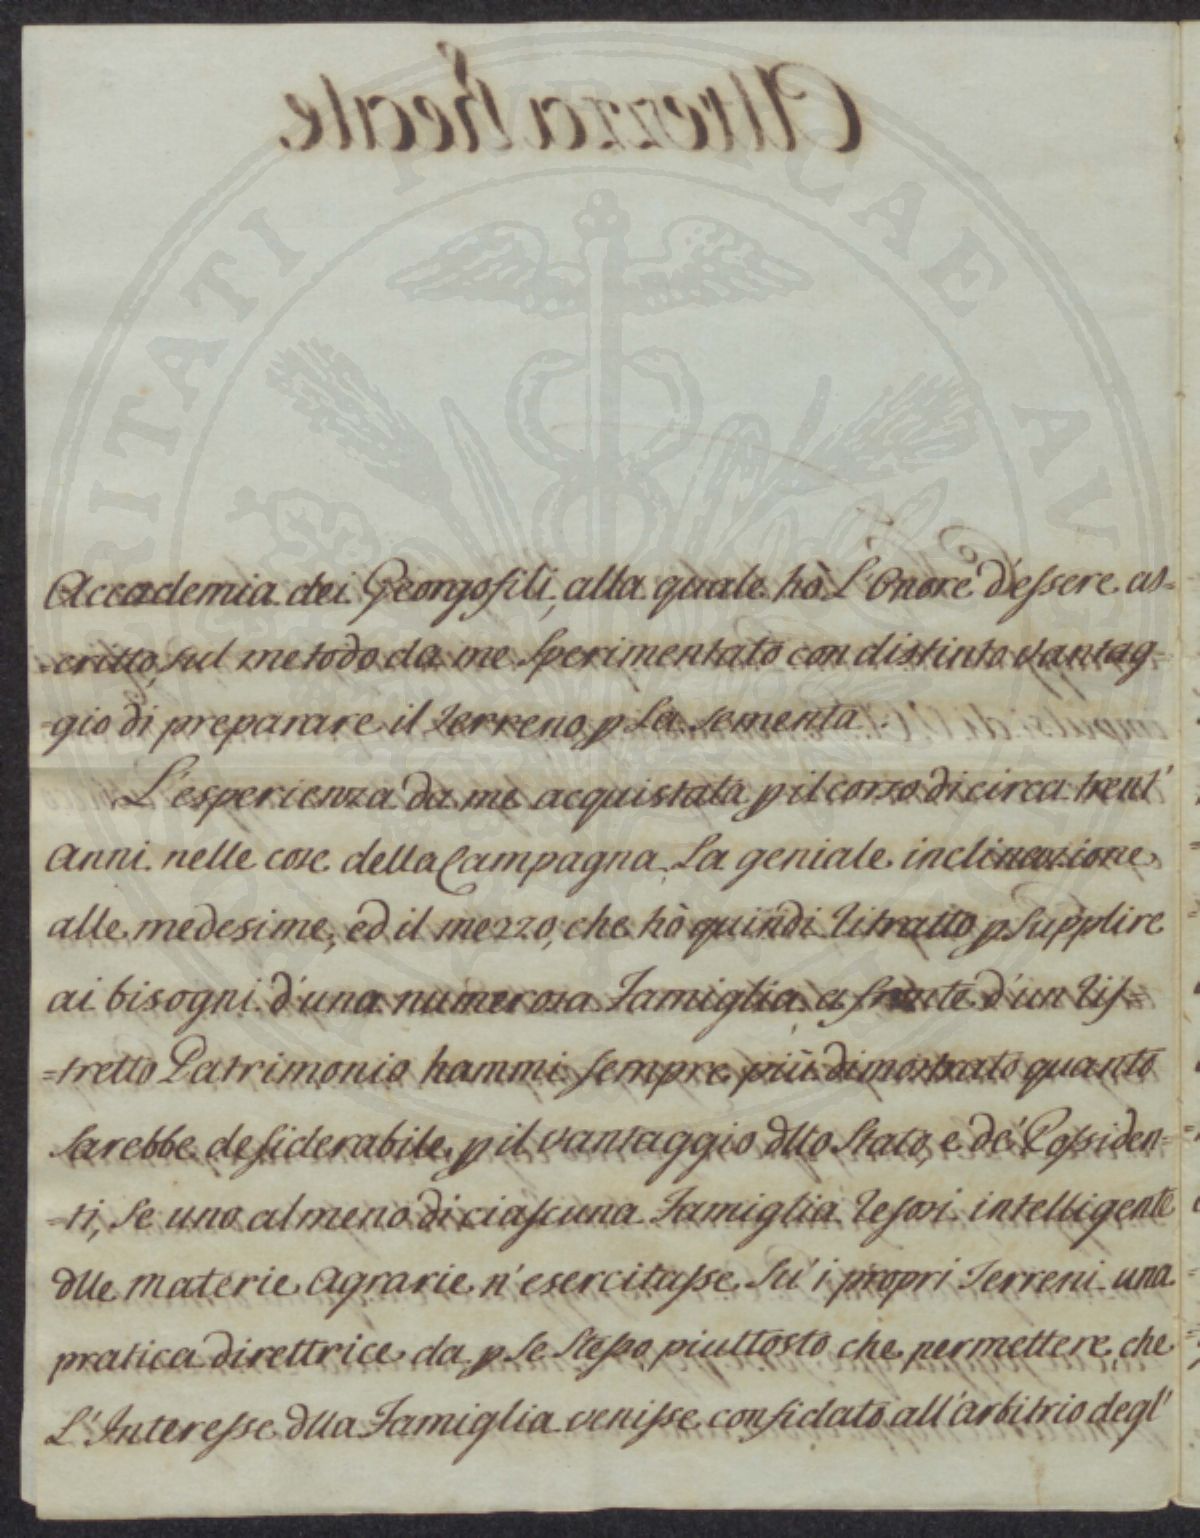 Altezza Reale.
PROSPERITATI PVBLICAE AVGENDAE
Accademia dei Georgofili, alla quale hò L'Onore d'essere as=
=critto, sul metodo da me sperimentato con distinto vantag=
=gio di preparare il Terreno p la sementa.
L'esperienza da me acquistata p il corso di circa trent'
Anni nelle cose della Campagna, La geniale inclinazione
alle medesime, ed il mezzo, che hò quindi ritratto p supplire
ai bisogni d'una numerosa Famiglia a fronte d'un ris=
=tretto Patrimonio hammi sempre più dimostrato quanto
sarebbe desiderabile, p il vantaggio dllo Stato, e de' Possiden=
=ti, se uno almeno di ciascuna Famiglia resosi intelligente
dlle materie Agrarie n'esercitasse su' i propri Terreni una
pratica direttrice da p se stesso, piuttosto che permettere, che
L'Interesse dlla Famiglia venisse confidato all'arbitrio degl'